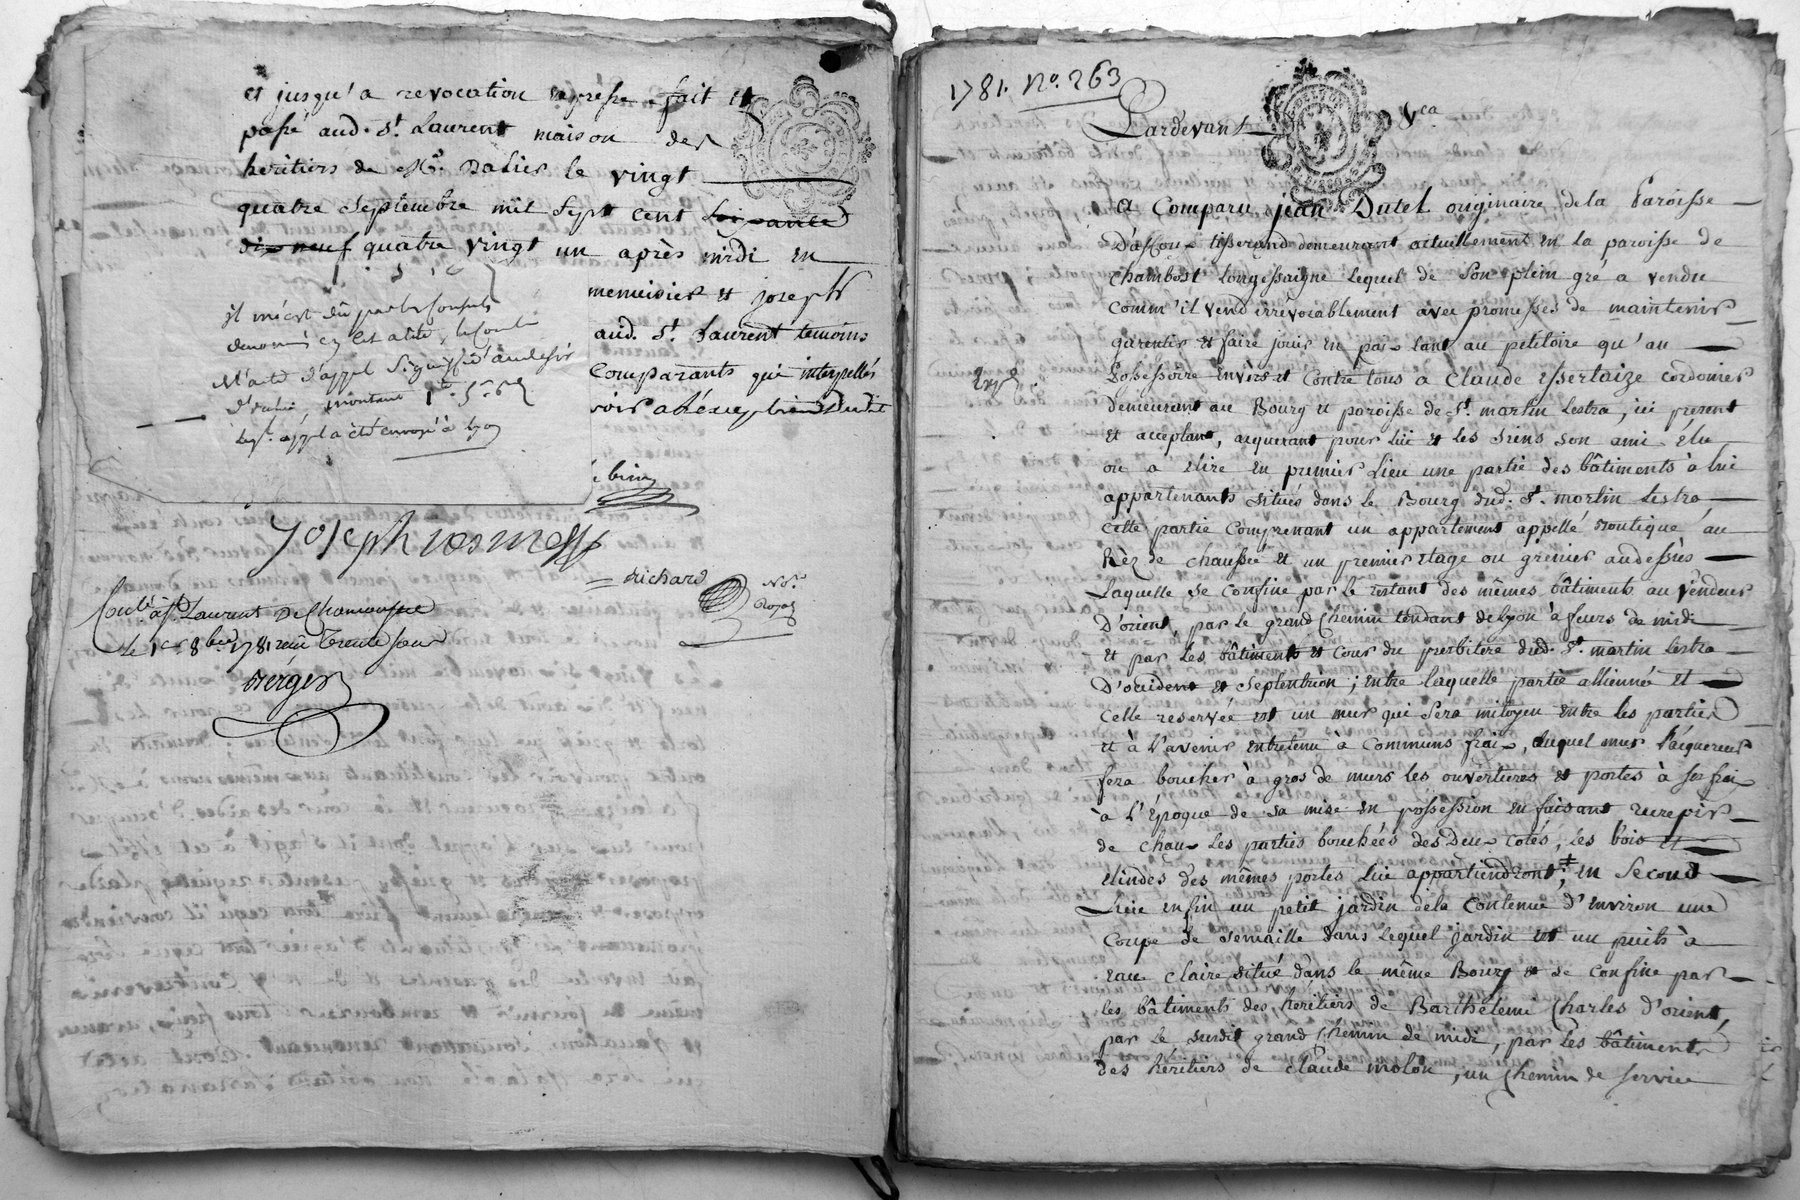 et jusqu'a revocation expresse fait et
passé aud. St. Laurent maison des
heritiers de Me. Dalier le vingt
quatre Septembre mil Sept cent soixante
dix neuf quatre vingt un après midi en
menuisier et joseph
aud. St. Laurent temoins
Comparants qui interpellés
il m'est dû par les
denommés en cet acte,
l'acte d'appel
d'
appel a été envoyé à Lyon
Joseph
Richard Nre.
Royal
Conlé. à St. Laurent De Chamousset
le 1er 8bre 1781 reçu trente sous
Berger
1781. No. 263
Pardevant
a Comparu jean Dutel originaire de la Paroisse
D'affoux tisserand demeurant actuellement en la paroisse de
Chambost Longessaigne Lequel de Son plein gré a vendu
comm'il vend irrévocablement avec promesses de maintenir
garentir et faire jouir en paix tant au petitoire qu'au
Possessoire envers et Contre tous a Claude Essertaize cordonier
demeurant au Bourg et paroisse de St. martin Lestra, ici present
et acceptant, acquerant pour lui et les siens son ami élu
ou a elire en premier Lieu une partie des bâtiments à lui
appartenants situés dans le Bourg dud. St. martin Lestra
cette partie Comprenant un appartement appellé Boutique au
Rèz de chaussée et un premier etage ou grenier audessus
Laquelle se confine par le restant des mêmes bâtiments au vendeur
D'orient, par le grand chemin tendant de Lyon à feurs de midi
et par les bâtiments et cour du presbitere dud. St. martin Lestra
D'occident et Septentrion; entre laquelle partie alliennée et
celle reservée est un mur qui Sera mitoyen entre les parties
et à l'avenir entretenu à Communs frais, duquel mur l'aquereur
fera boucher à gros de murs les ouvertures et portes à ses frais
à l'Epoque de sa mise en possession en faisant recrepir
de chaux les parties bouchées des Deux cotés, les bois et
elindes des mêmes portes Lui appartiendront; en Second
Lieu enfin un petit jardin dela Contenue d'environ une
Coupe de semaille dans Lequel jardin est un puits à
eau claire situé dans le même Bourg et se confine par
les bâtiments des heritiers de Barthélemi Charles d'orient,
par le susdit grand chemin de midi, par les bâtiments
des héritiers de Claude molon, un chemin de service